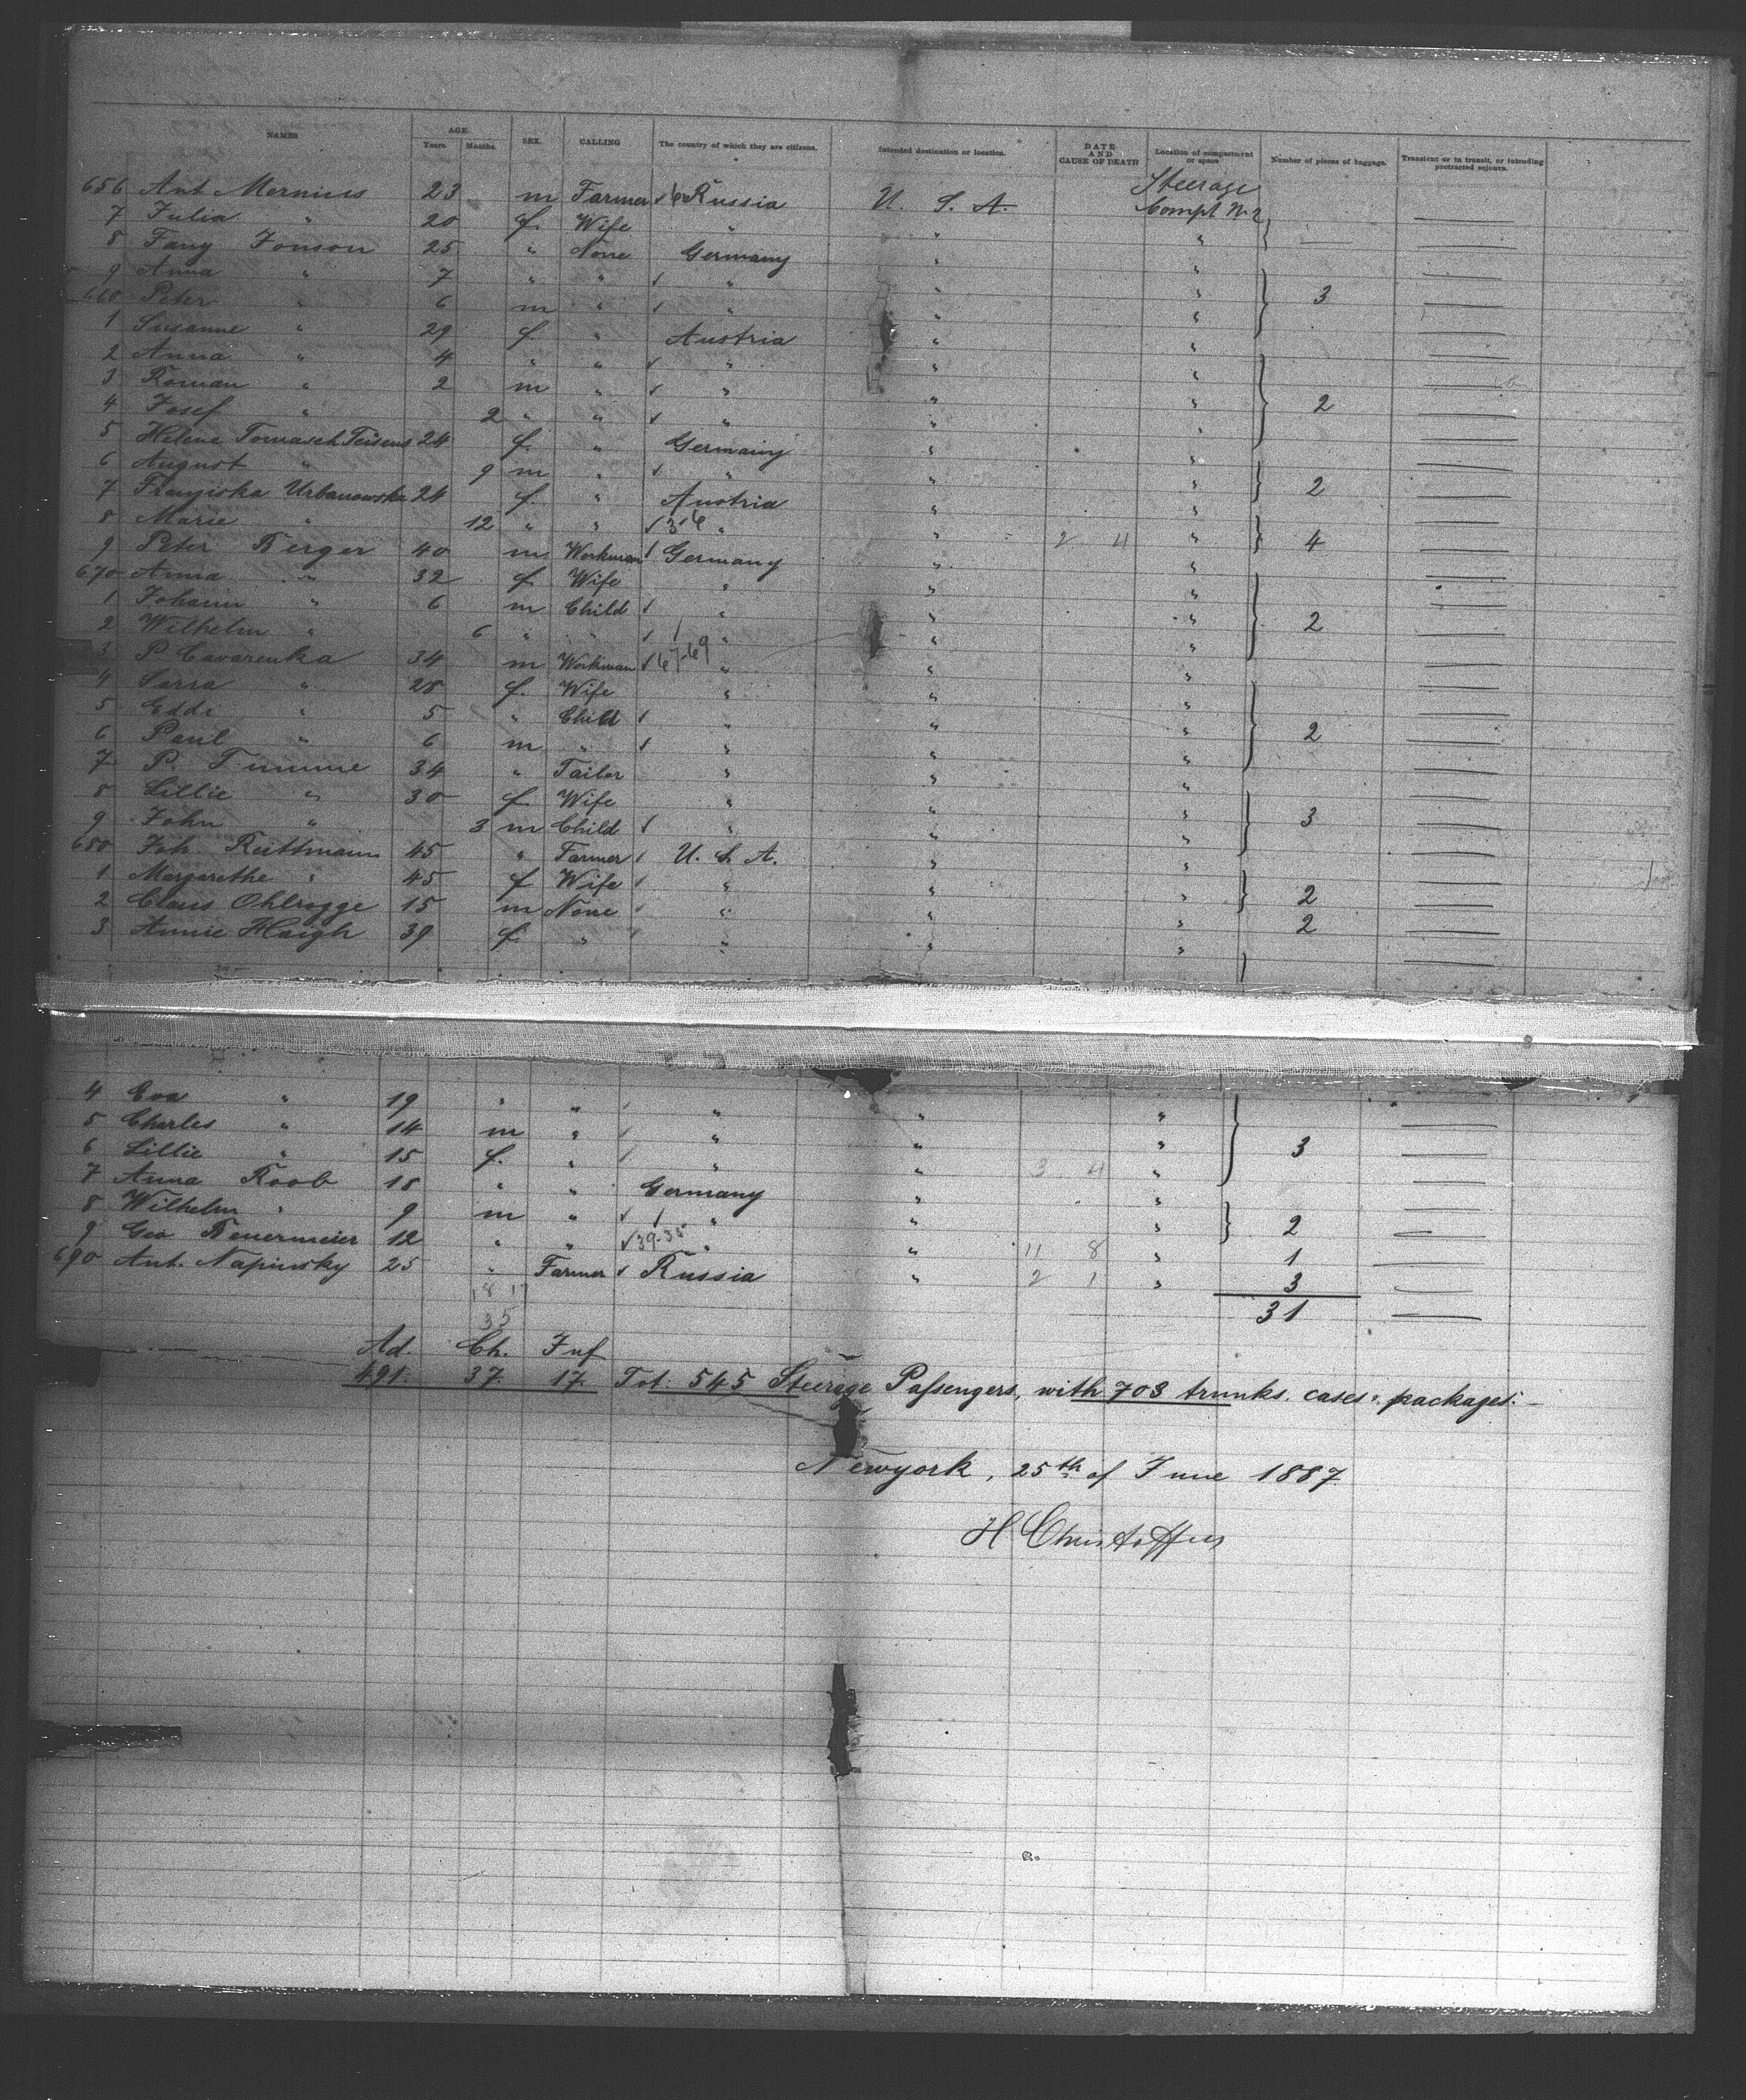 NAMES AGE. Years. Months. SEX. CALLING The country of which they are citizens. Intended destination or location. DATE AND CAUSE OF DEATH Location of compartment or space Number of pieces of baggage. Transient or in transit, or intending protracted sojourn.
656 Ant 23 m Farmer Russia U. S. A. Steerage
7 Julia " 20 f. Wife " " Compt N. 2
8 Fany Jonson 25 " None Germany " "
9 Anna " 7 " " " " "
660 Peter " 6 m " " " " 3
1 Susanne " 29 f. " Austria " "
2 Anna " 4 " " " " "
3 Roman " 2 m " " " "
4 Josef " 2 " " " " " 2
5 Helene 24 f. " Germany " "
6 August " 9 m " " " "
7 Franziska Urbanowska 24 f. " Austria " " 2
8 Marie " 12 " " 3-6 " " "
9 Peter Berger 40 m Workman Germany " 2 4 " 4
670 Anna " 32 f. Wife " " "
1 Johann " 6 m Child " " "
2 Wilhelm " 6 " " " " " 2
3 P. Cavarenka 34 m Workman 67-69 " " "
4 Sarra " 28 f. Wife " " "
5 Edde " 5 " Child " " "
6 Paul " 6 m " " " " 2
7 P. Timme 34 " Tailor " " "
8 Lillie " 30 f Wife " " "
9 John " 3 m Child " " " 3
680 Joh. Reittmann 45 " Farmer U. S. A. " "
1 Margarethe " 45 f Wife " " "
2 Claus Ohlrogge 15 m None " " " 2
3 Annie Haigh 39 f. " " " " 2
4 Eva " 19 " " " " "
5 Charles " 14 m " " " "
6 Lillie " 15 f. " " " 3 4 " 3
7 Anna Koob 18 " " Germany " "
8 Wilhelm " 9 m " " " " 2
9 Geo Beuermeier 12 " " 39-35 " " 11 8 " 1
690 Ant. Napinsky 25 " Farmer Russia " 2 1 " 3
18 17 31
35
Ad. Ch. Inf
491. 37. 17. Tot. 545 Steerage Passengers, with 703 trunks, cases & packages.
Newyork, 25th of June 1887
H Christoffers